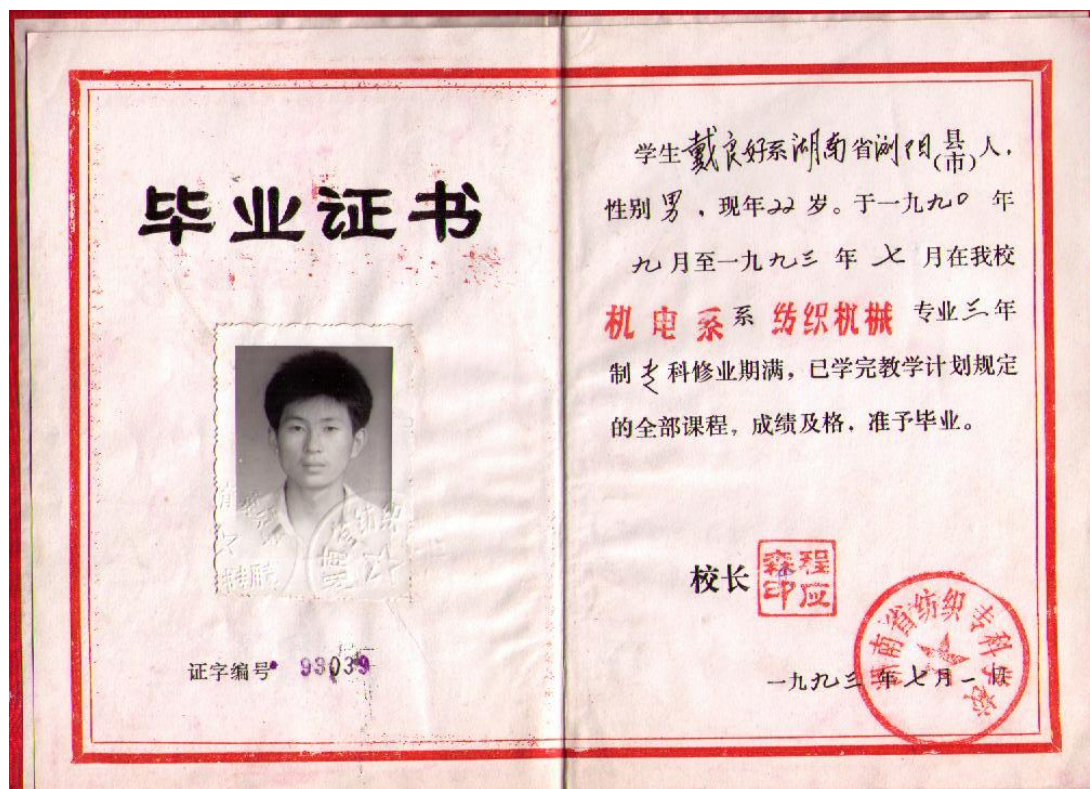 毕业证书
证字编号 93039
学生戴良好系湖南省浏阳县(市)人，
性别男，现年22岁。于一九九0年
九月至一九九三年七月在我校
机电系系纺织机械专业三年
制专科修业期满，已学完教学计划规定
的全部课程，成绩及格，准予毕业。
校长
程应森印
一九九三年七月一日
湖南省纺织专科学校